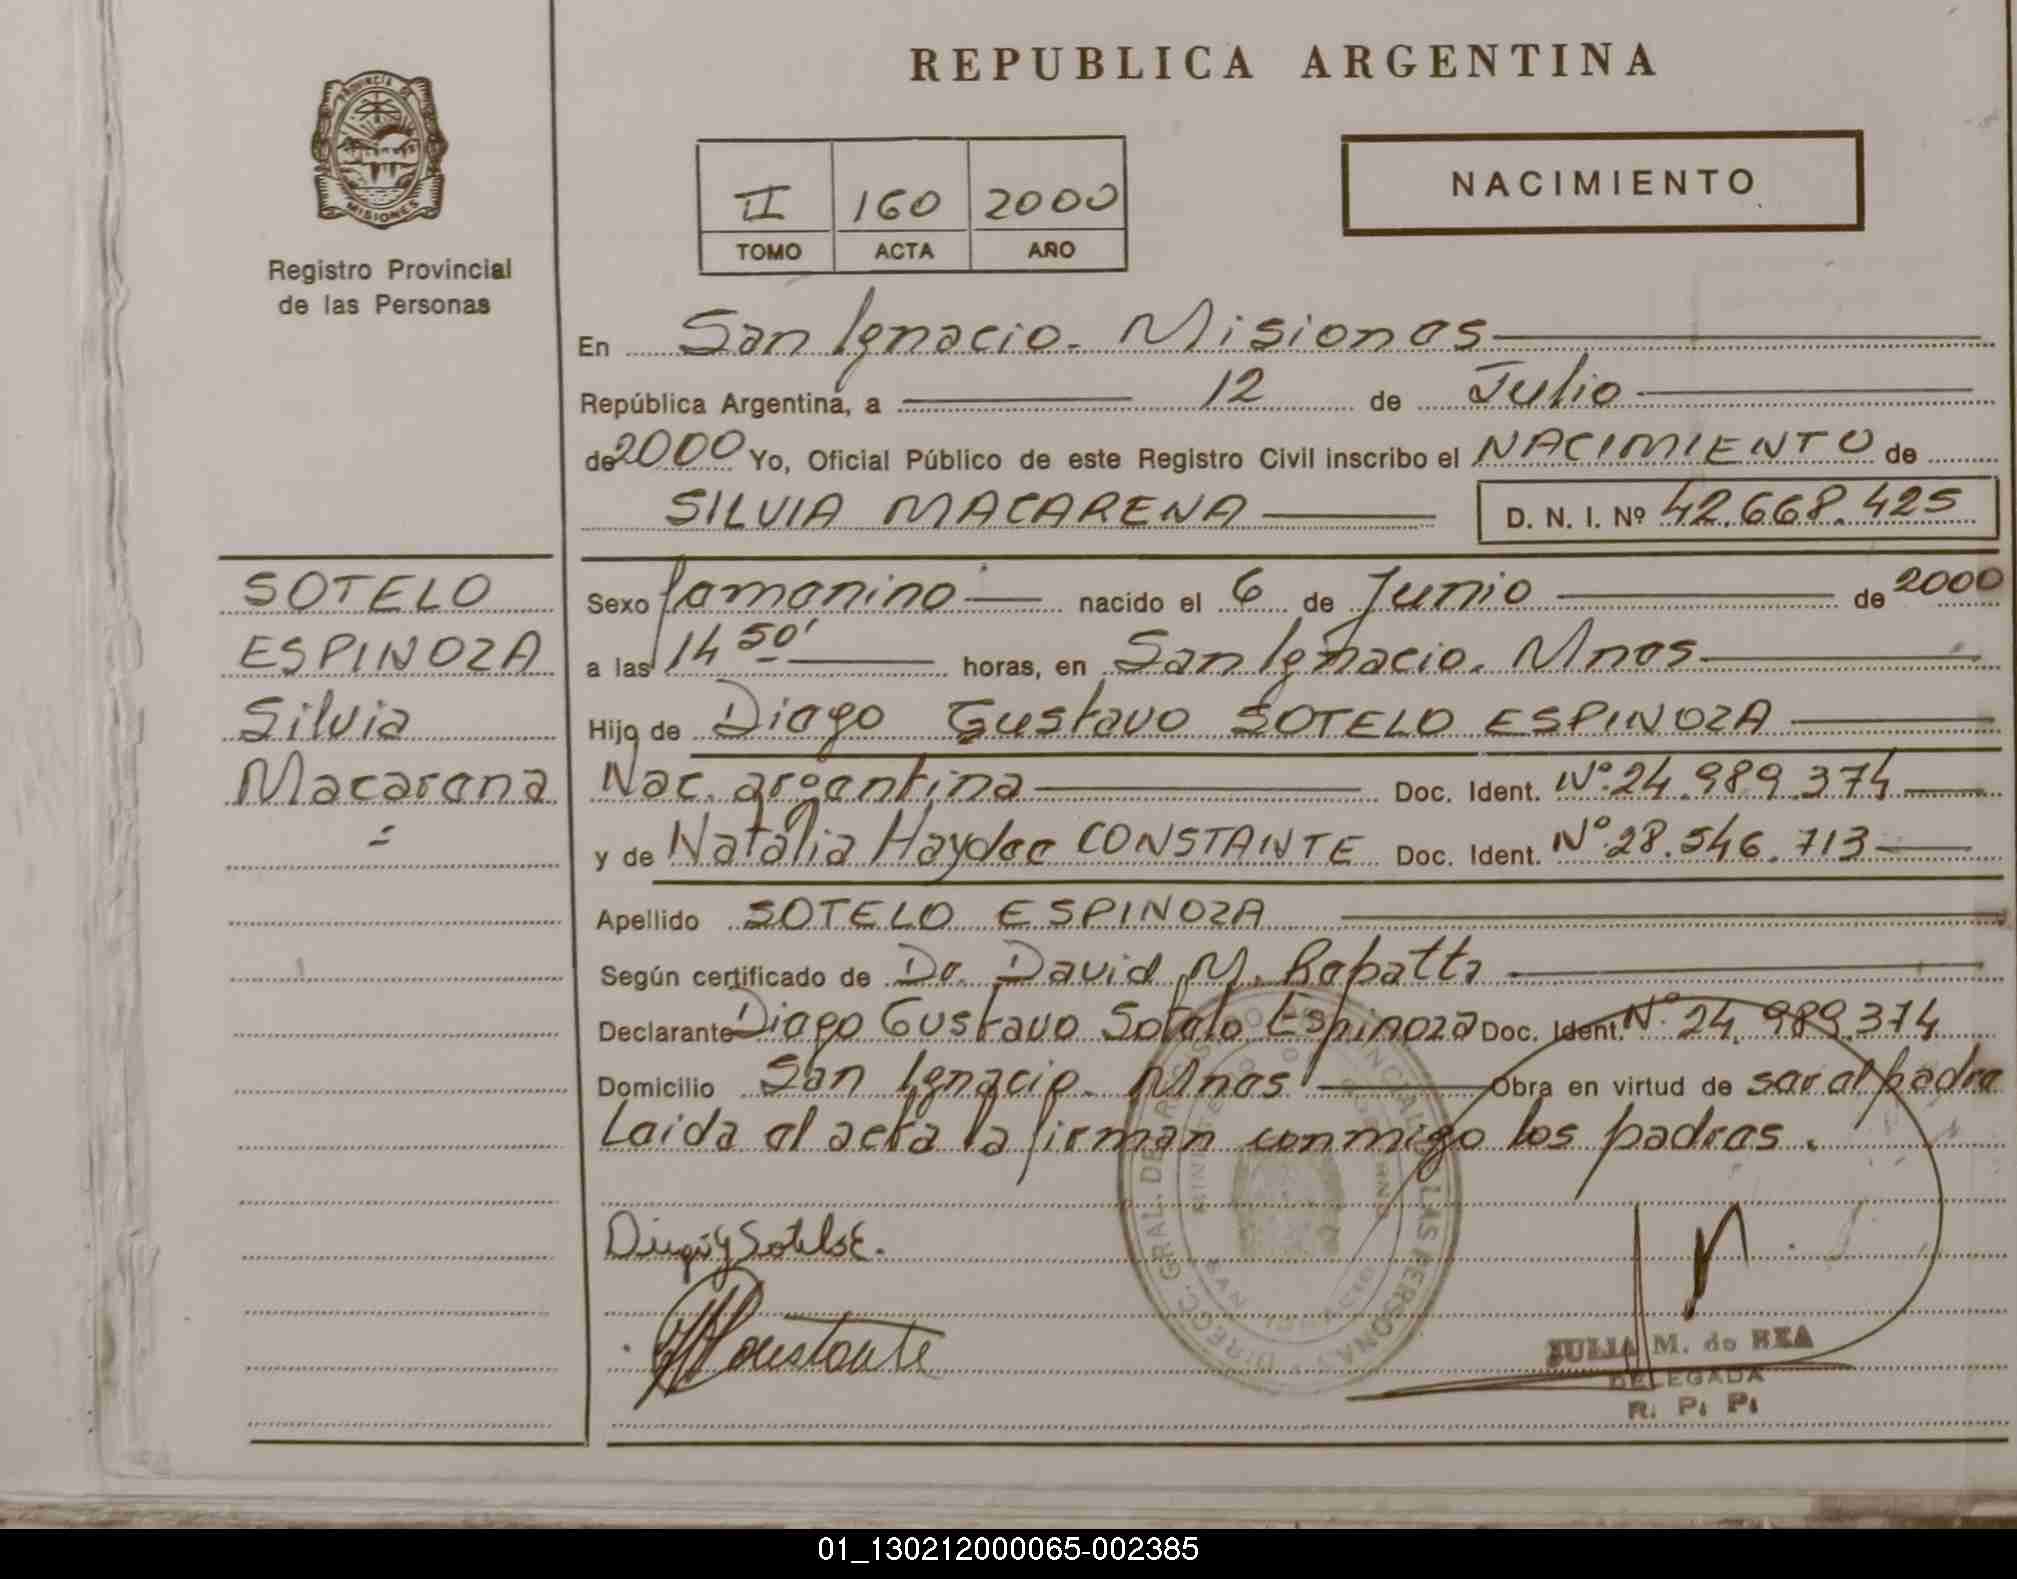 REPUBLICA ARGENTINA
PROVINCIA DE
MISIONES
Registro Provincial
de las Personas
II 160 2000
TOMO ACTA AÑO
NACIMIENTO
En San Ignacio. Misiones
República Argentina, a 12 de Julio
de 2000 Yo, Oficial Público de este Registro Civil inscribo el NACIMIENTO de
SILVIA MACARENA D. N. I. Nº 42.668.425
SOTELO
ESPINOZA
Silvia
Macarena
=
Sexo femenino nacido el 6 de Junio de 2000
a las 14 50' horas, en San Ignacio. Mnes
Hijo de Diego Gustavo SOTELO ESPINOZA
Nac. argentina Doc. Ident. Nº 24.989.374
y de Natalia Haydee CONSTANTE Doc. Ident. Nº 28.546.713
Apellido SOTELO ESPINOZA
Según certificado de Dr. David M.
Declarante Diego Gustavo Sotelo Espinoza Doc. Ident. Nº 24.989.374
Domicilio San Ignacio. Mnes Obra en virtud de ser el padre
Leida el acta la firman conmigo los padres.
Constante
JULIA M. de REA
DELEGADA
R. P. P.
01_130212000065-002385